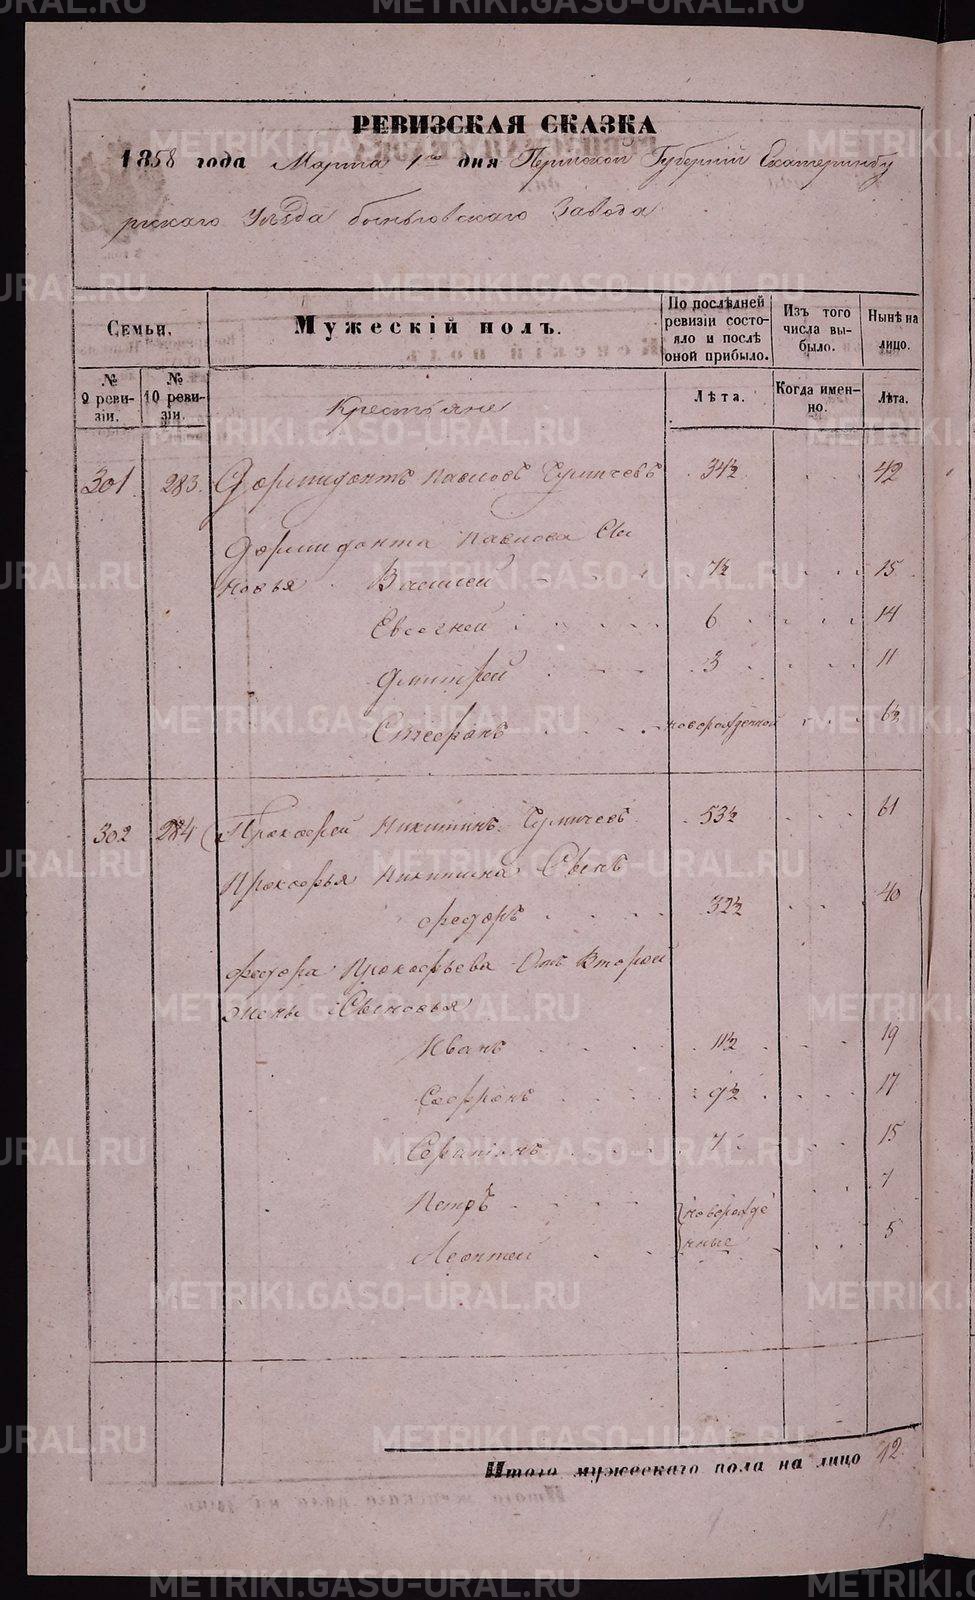 РЕВИЗСКАЯ СКАЗКА
1858 года Марта 1го дня Пермской Губернии Екатеринбу
ргскаго Уезда заво­да
Семьи. Мужескій полъ. По послѣдней ревизіи состояло и послѣ оной прибыло. Изъ того числа выбыло. Нынѣ на лицо.
№ 9 ревизіи. № 10 ревизіи. Лѣта. Когда именно. Лѣта.
Крестьяне
301 283 Дормидонтъ Павловъ Чупичевъ 34½ 42
Дормидонта Павлова Сы
новья Василей 7½ 15
Евсегней 6 14
Дмитрей 3 11
Стефанъ новорожденной 6½
302 284 Прокофей Никитинъ Чупичевъ 53½ 61
Прокофья Никитина Сынъ
Федоръ 32½ 40
Федора Прокофьева Отъ Второй
жены Сыновья
Иванъ 11½ 19
Софронъ 9½ 17
Серапіонъ 7 15
Петръ новорожде 7
Леонтей нные 5
Итого мужескаго пола на лицо 12
METRIKI.GASO-URAL.RU